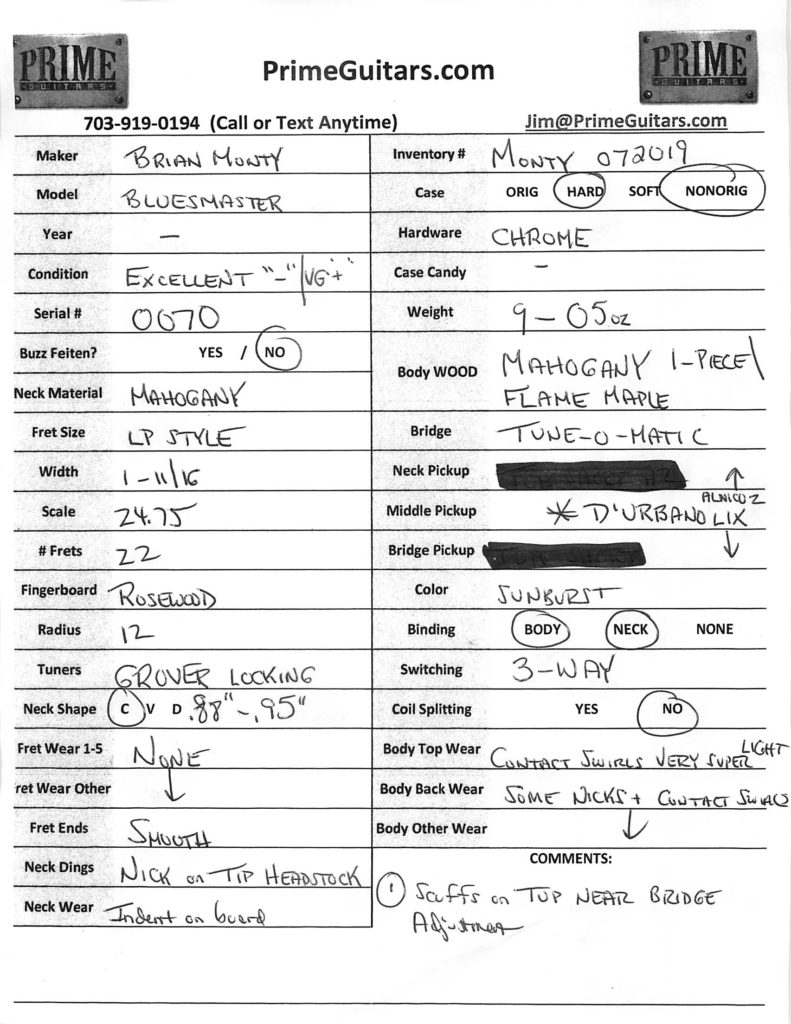 PRIME
GUITARS
PrimeGuitars.com
PRIME
GUITARS
703-919-0194 (Call or Text Anytime)
Jim@PrimeGuitars.com
Maker BRIAN MONTY
Model BLUESMASTER
Year –
Condition EXCELLENT "-"/VG"+"
Serial # 0070
Buzz Feiten? YES / NO
Neck Material MAHOGANY
Fret Size LP STYLE
Width 1-11/16
Scale 24.75
# Frets 22
Fingerboard ROSEWOOD
Radius 12
Tuners GROVER LOCKING
Neck Shape C V D .88"-.95"
Fret Wear 1-5 NONE
ret Wear Other ↓
Fret Ends SMOOTH
Neck Dings NICK on TIP HEADSTOCK
Neck Wear Indent on board
Inventory # MONTY 072019
Case ORIG HARD SOFT NONORIG
Hardware CHROME
Case Candy –
Weight 9-05oz
Body WOOD MAHOGANY 1-PIECE\
FLAME MAPLE
Bridge TUNE-O-MATIC
Neck Pickup ↑
ALNICO 2
Middle Pickup * D'URBANO LIX
Bridge Pickup ↓
Color SUNBURST
Binding BODY NECK NONE
Switching 3-WAY
Coil Splitting YES NO
Body Top Wear CONTACT SWIRLS VERY SUPER LIGHT
Body Back Wear SOME NICKS + CONTACT SWIRLS
Body Other Wear ↓
COMMENTS:
① Scuffs on TOP NEAR BRIDGE
Adjustment